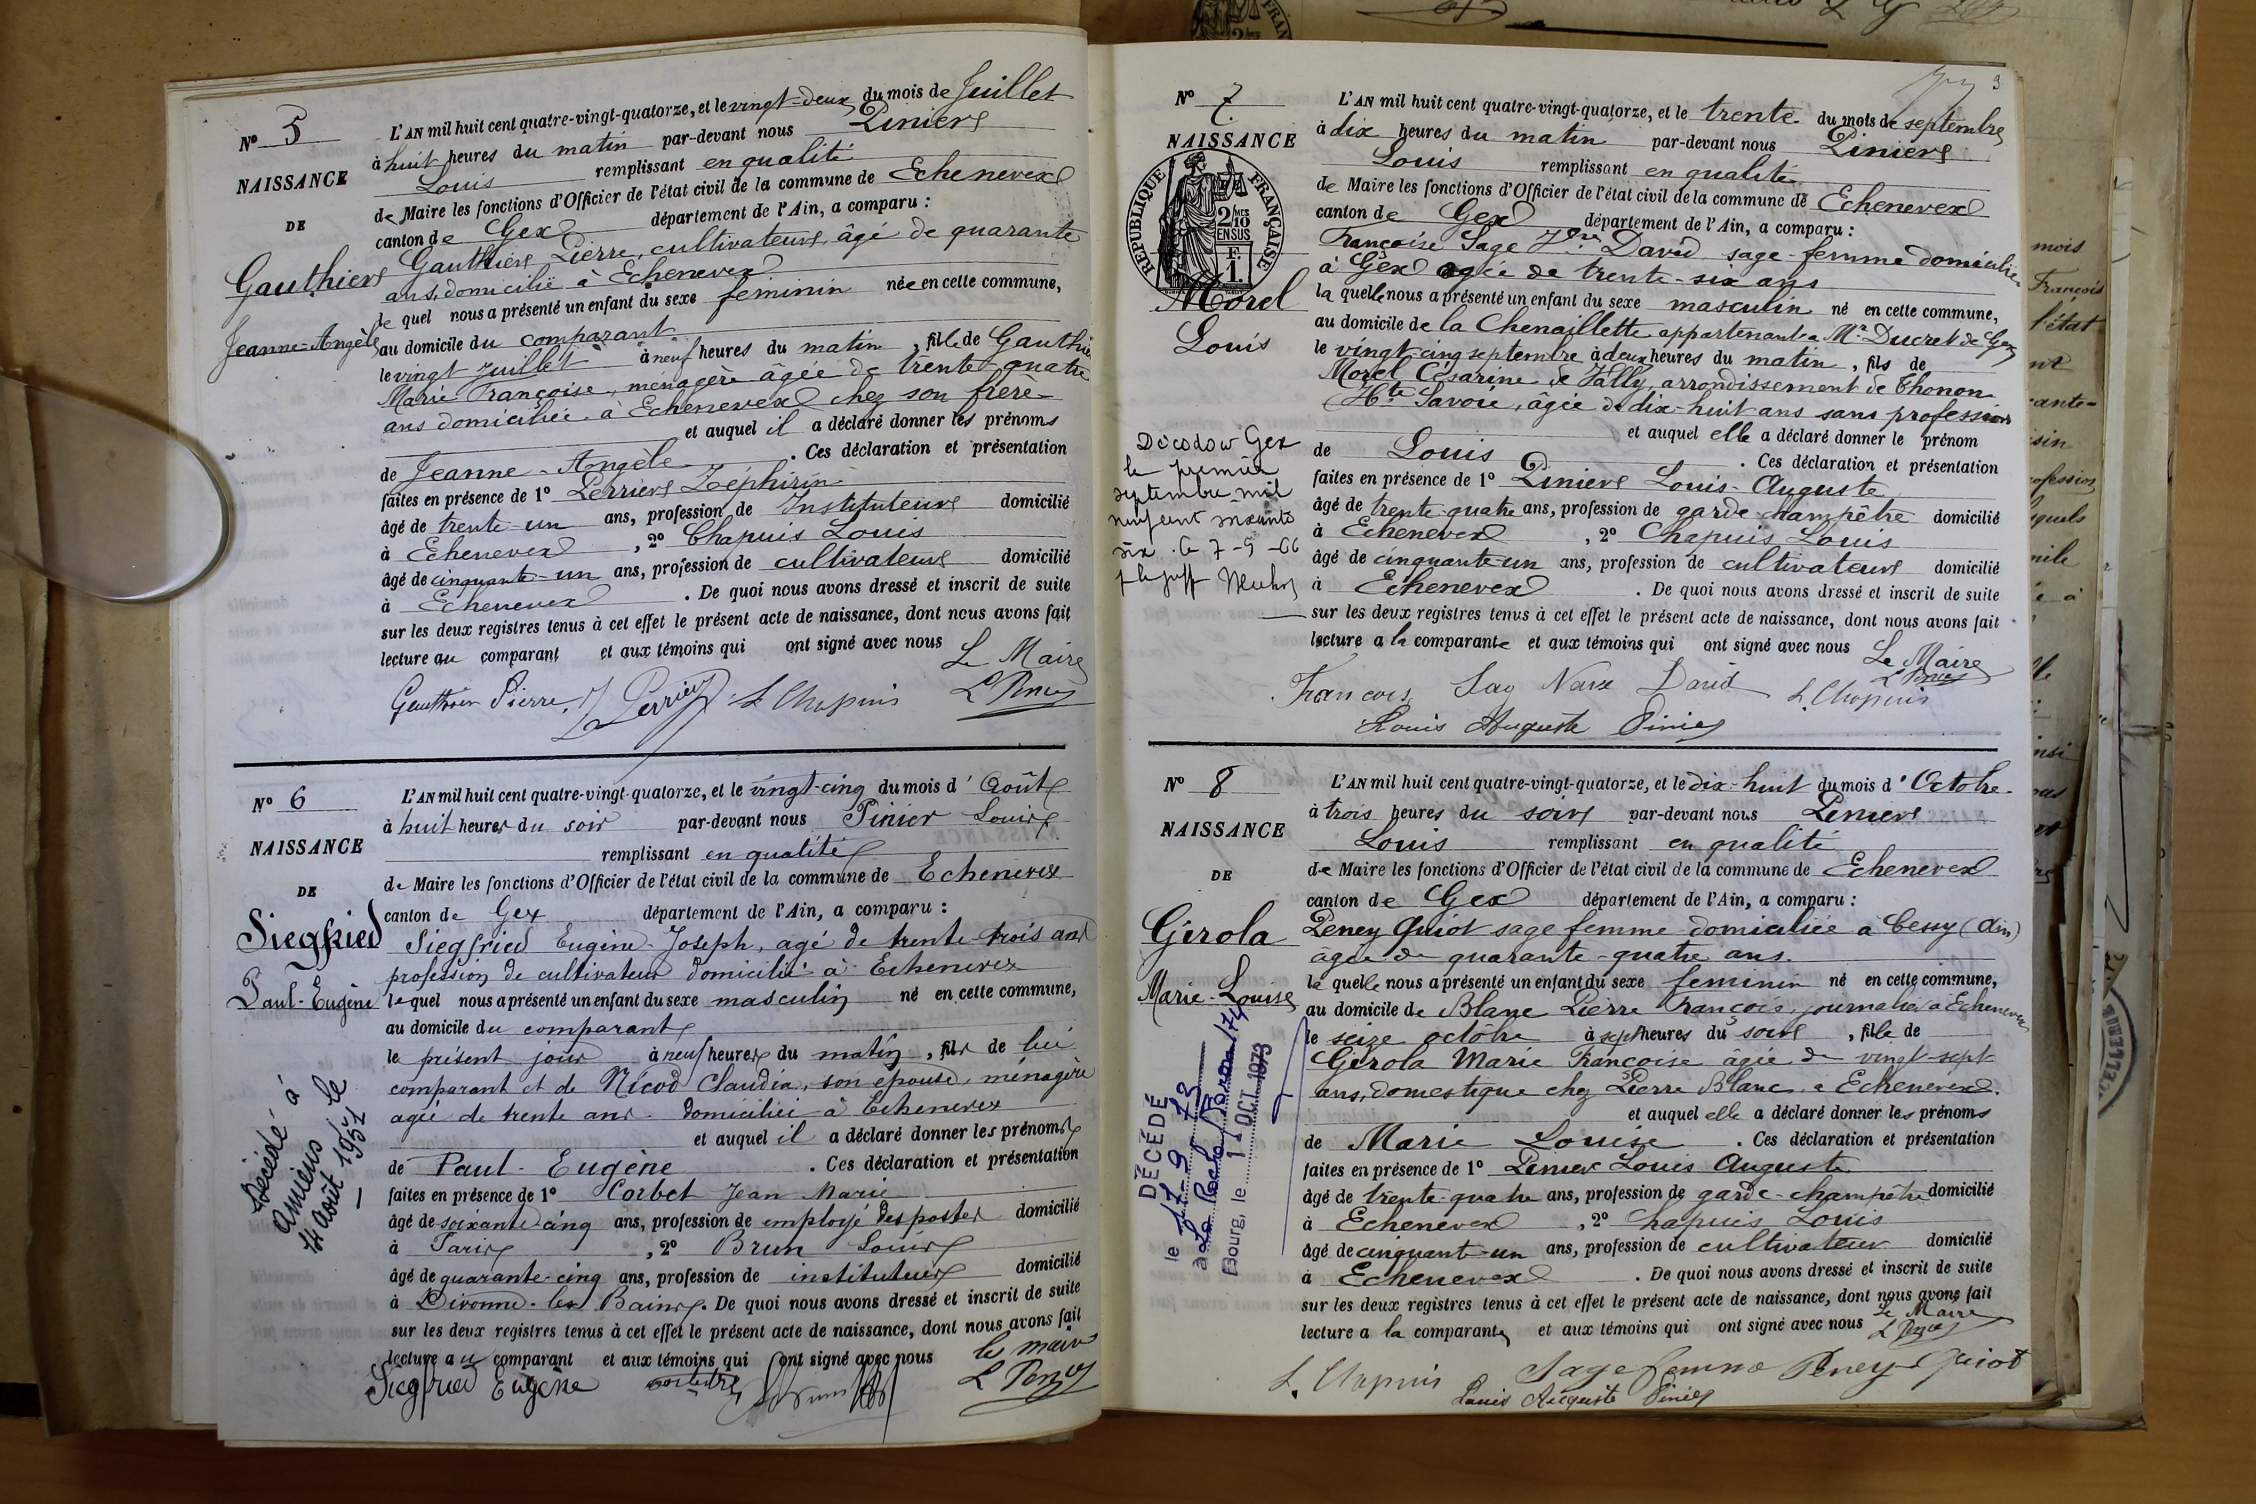 No 5
NAISSANCE
DE
Gauthier
Jeanne-Angèle
L'AN mil huit cent quatre-vingt-quatorze, et le vingt-deux du mois de Juillet
à huit heures du matin par-devant nous Piniers
Louis remplissant en qualité
de Maire les fonctions d'Officier de l'état civil de la commune de Echenevex
canton de Gex département de l'Ain, a comparu :
Gauthier Pierre, cultivateur, âgé de quarante
ans, domicilié à Echenevex
le quel nous a présenté un enfant du sexe feminin née en cette commune,
au domicile du comparant
le vingt Juillet à neuf heures du matin, fille de Gauthier
Marie Françoise, ménagère âgée de trente quatre
ans domiciliée à Echenevex chez son frère
et auquel il a déclaré donner les prénoms
de Jeanne-Angèle. Ces déclaration et présentation
faites en présence de 1º Perrier Zéphirin
âgé de trente-un ans, profession de Instituteur domicilié
à Echenevex, 2º Chapuis Louis
âgé de cinquante-un ans, profession de cultivateur domicilié
à Echenevex. De quoi nous avons dressé et inscrit de suite
sur les deux registres tenus à cet effet le présent acte de naissance, dont nous avons fait
lecture au comparant et aux témoins qui ont signé avec nous Le Maire
Gauthier Pierre Z Perrier L Chapuis L Pinier
No 6
NAISSANCE
DE
Siegfried
Paul-Eugène
Décédé à
Amiens le
14 Août 1951
L'AN mil huit cent quatre-vingt-quatorze, et le vingt-cinq du mois d'Août
à huit heures du soir par-devant nous Pinier Louis
remplissant en qualité
de Maire les fonctions d'Officier de l'état civil de la commune de Echenevex
canton de Gex département de l'Ain, a comparu :
Siegfried Eugène-Joseph, agé de trente-trois ans
profession de cultivateur domicilié à Echenevex
lequel nous a présenté un enfant du sexe masculin né en cette commune,
au domicile du comparant
le présent jour à neuf heures du matin, fils de lui
comparant et de Nicod Claudia, son épouse, ménagère
agée de trente ans. domiciliée à Echenevex
et auquel il a déclaré donner les prénoms
de Paul-Eugène. Ces déclaration et présentation
faites en présence de 1º Corbet Jean Marie
âgé de soixante-cinq ans, profession de employé des postes domicilié
à Paris, 2º Brun Louis
âgé de quarante-cinq ans, profession de instituteur domicilié
à Divonne-les Bains. De quoi nous avons dressé et inscrit de suite
sur les deux registres tenus à cet effet le présent acte de naissance, dont nous avons fait
lecture au comparant et aux témoins qui ont signé avec nous le maire
Siegfried Eugène L Pinier
No 7
NAISSANCE
RÉPUBLIQUE FRANÇAISE
2 MES
10
EN SUS
F.
1.
Morel
Louis
Gex
le premier
septembre mil
neuf cent soixante
six. Le 7-9-66
L'AN mil huit cent quatre-vingt-quatorze, et le trente du mois de septembre
à dix heures du matin par-devant nous Piniers
Louis remplissant en qualité
de Maire les fonctions d'Officier de l'état civil de la commune de Echenevex
canton de Gex département de l'Ain, a comparu :
Françoise Sage David sage-femme domiciliée
à Gex agée de trente-six ans
la quelle nous a présenté un enfant du sexe masculin né en cette commune,
au domicile de la Chenaillette appartenant a Mr Ducret de Gex
le vingt cinq septembre à deux heures du matin, fils de
Morel Césarine de Fally, arrondissement de Thonon
(Hte Savoie, âgée de dix-huit ans sans profession
et auquel elle a déclaré donner le prénom
de Louis. Ces déclaration et présentation
faites en présence de 1º Piniers Louis-Auguste
âgé de trente-quatre ans, profession de garde-champêtre domicilié
à Echenevex, 2º Chapuis Louis
âgé de cinquante-un ans, profession de cultivateur domicilié
à Echenevex. De quoi nous avons dressé et inscrit de suite
sur les deux registres tenus à cet effet le présent acte de naissance, dont nous avons fait
lecture a la comparante et aux témoins qui ont signé avec nous Le Maire
L Pinier
David L. Chapuis
Louis Auguste Pinier
No 8
NAISSANCE
DE
Gérola
Marie-Louise
DÉCÉDÉ
le 17-9-73
Bourg, le 11 OCT 1973
L'AN mil huit cent quatre-vingt-quatorze, et le dix-huit du mois d'Octobre
à trois heures du soir par-devant nous Piniers
Louis remplissant en qualité
de Maire les fonctions d'Officier de l'état civil de la commune de Echenevex
canton de Gex département de l'Ain, a comparu :
Peney Quiot sage femme domiciliée à Cessy (Ain)
âgée de quarante-quatre ans.
la quelle nous a présenté un enfant du sexe feminin né en cette commune,
au domicile de Blanc Pierre François, journalier à Echenevex
le seize octobre à sept heures du soir, fille de
Gérola Marie Françoise âgée de vingt-sept
ans, domestique chez Pierre Blanc a Echenevex.
et auquel elle a déclaré donner les prénoms
de Marie Louise. Ces déclaration et présentation
faites en présence de 1º Pinier Louis Auguste
âgé de trente-quatre ans, profession de garde-champêtre domicilié
à Echenevex, 2º Chapuis Louis
âgé de cinquante-un ans, profession de cultivateur domicilié
à Echenevex. De quoi nous avons dressé et inscrit de suite
sur les deux registres tenus à cet effet le présent acte de naissance, dont nous avons fait
lecture a la comparante et aux témoins qui ont signé avec nous Le Maire
L Pinier
L. Chapuis Sage femme Peney-Quiot
Louis Auguste Pinier